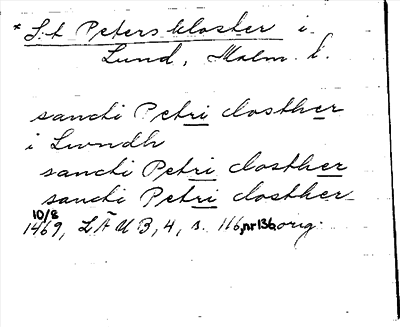 * S:t Peters kloster i
Lund, Malm. l.
sancti Petri closther
i Lwndh
sancti Petri closther
sancti Petri closther
10/8
1469, LÄUB, 4, s. 116, nr 136 orig.